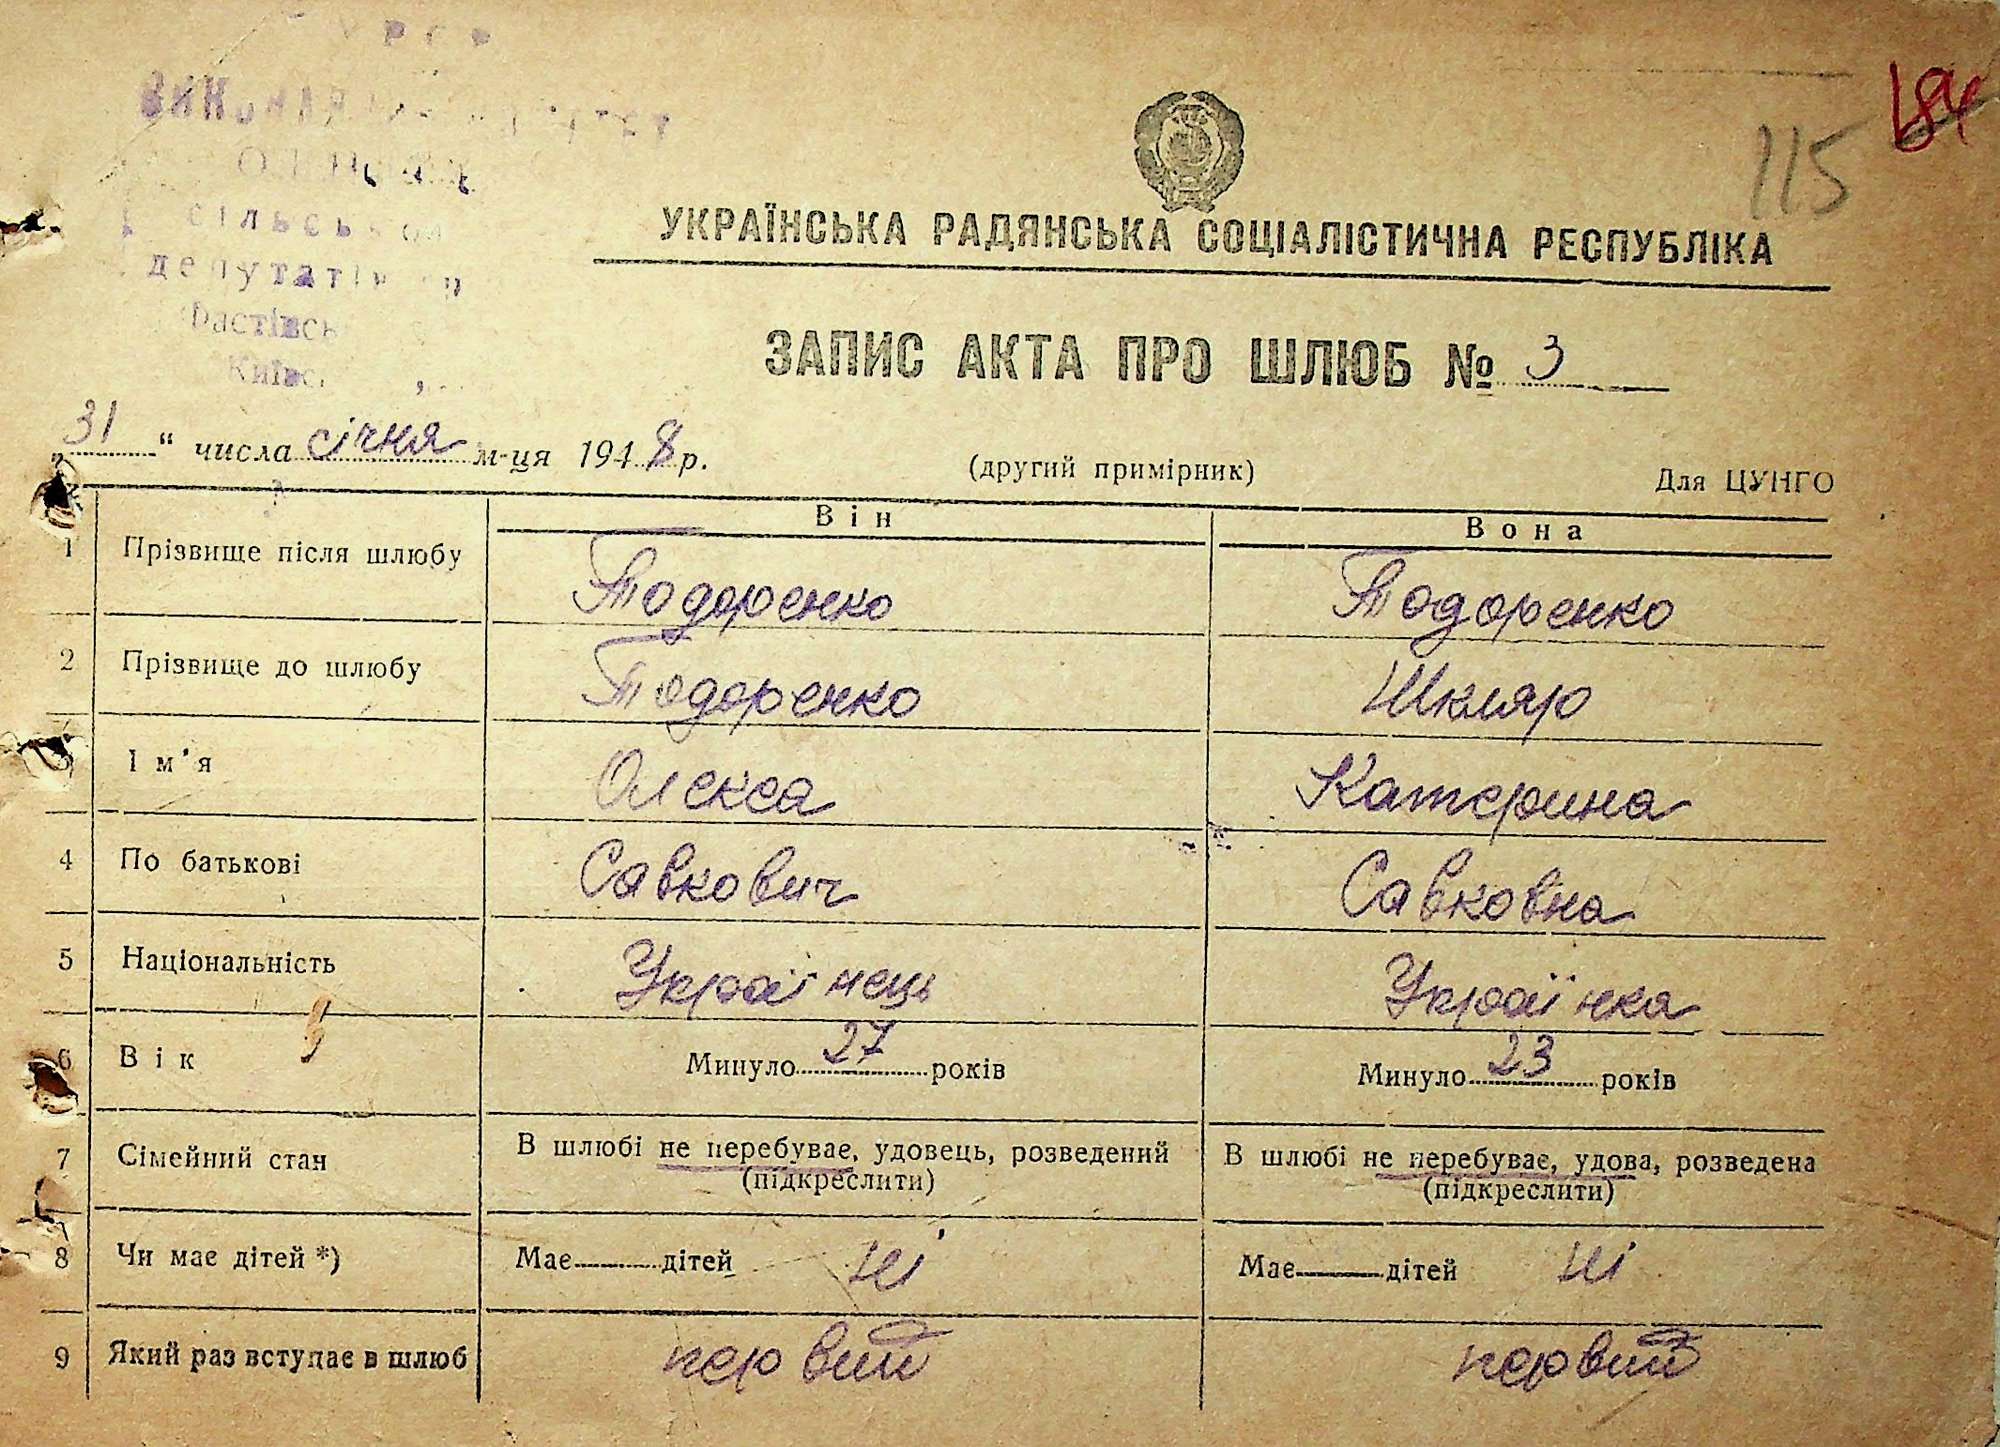 УРСР
сільської
депутатів
Київс.
115
УКРАЇНСЬКА РАДЯНСЬКА СОЦІАЛІСТИЧНА РЕСПУБЛІКА
ЗАПИС АКТА ПРО ШЛЮБ № 3
„31“ числа січня м-ця 1948 р.
(другий примірник)
Для ЦУНГО
Він Вона
1 Прізвище після шлюбу Тодоренко Тодоренко
2 Прізвище до шлюбу Тодоренко Шкляр
3 Ім'я Олекса Катерина
4 По батькові Савкович Савковна
5 Національність Українець Українка
6 Вік Минуло 27 років Минуло 23 років
7 Сімейний стан В шлюбі не перебуває, удовець, розведений В шлюбі не перебуває, удова, розведена
(підкреслити) (підкреслити)
8 Чи має дітей *) Має дітей ні Має дітей ні
9 Який раз вступає в шлюб первий первий